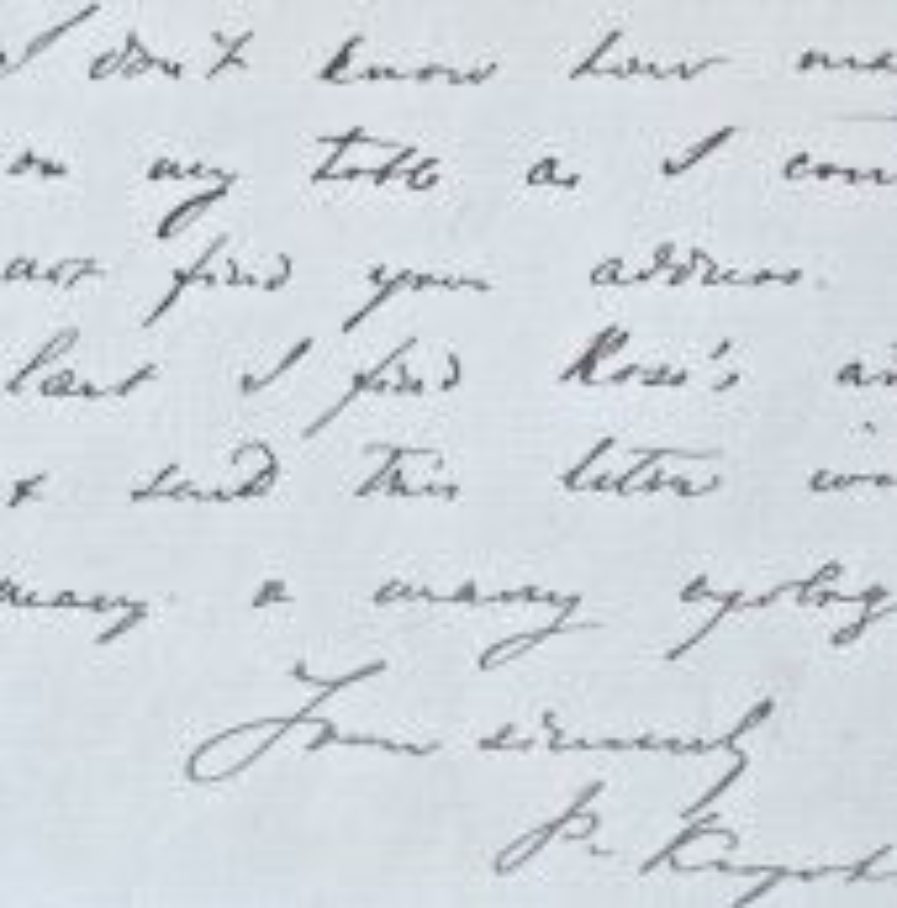 I don't know how ma
on my table as I cou
not find your address.
last I find Rose's a
& send this letter wi
many & many apolog
Yours sincerely
P.